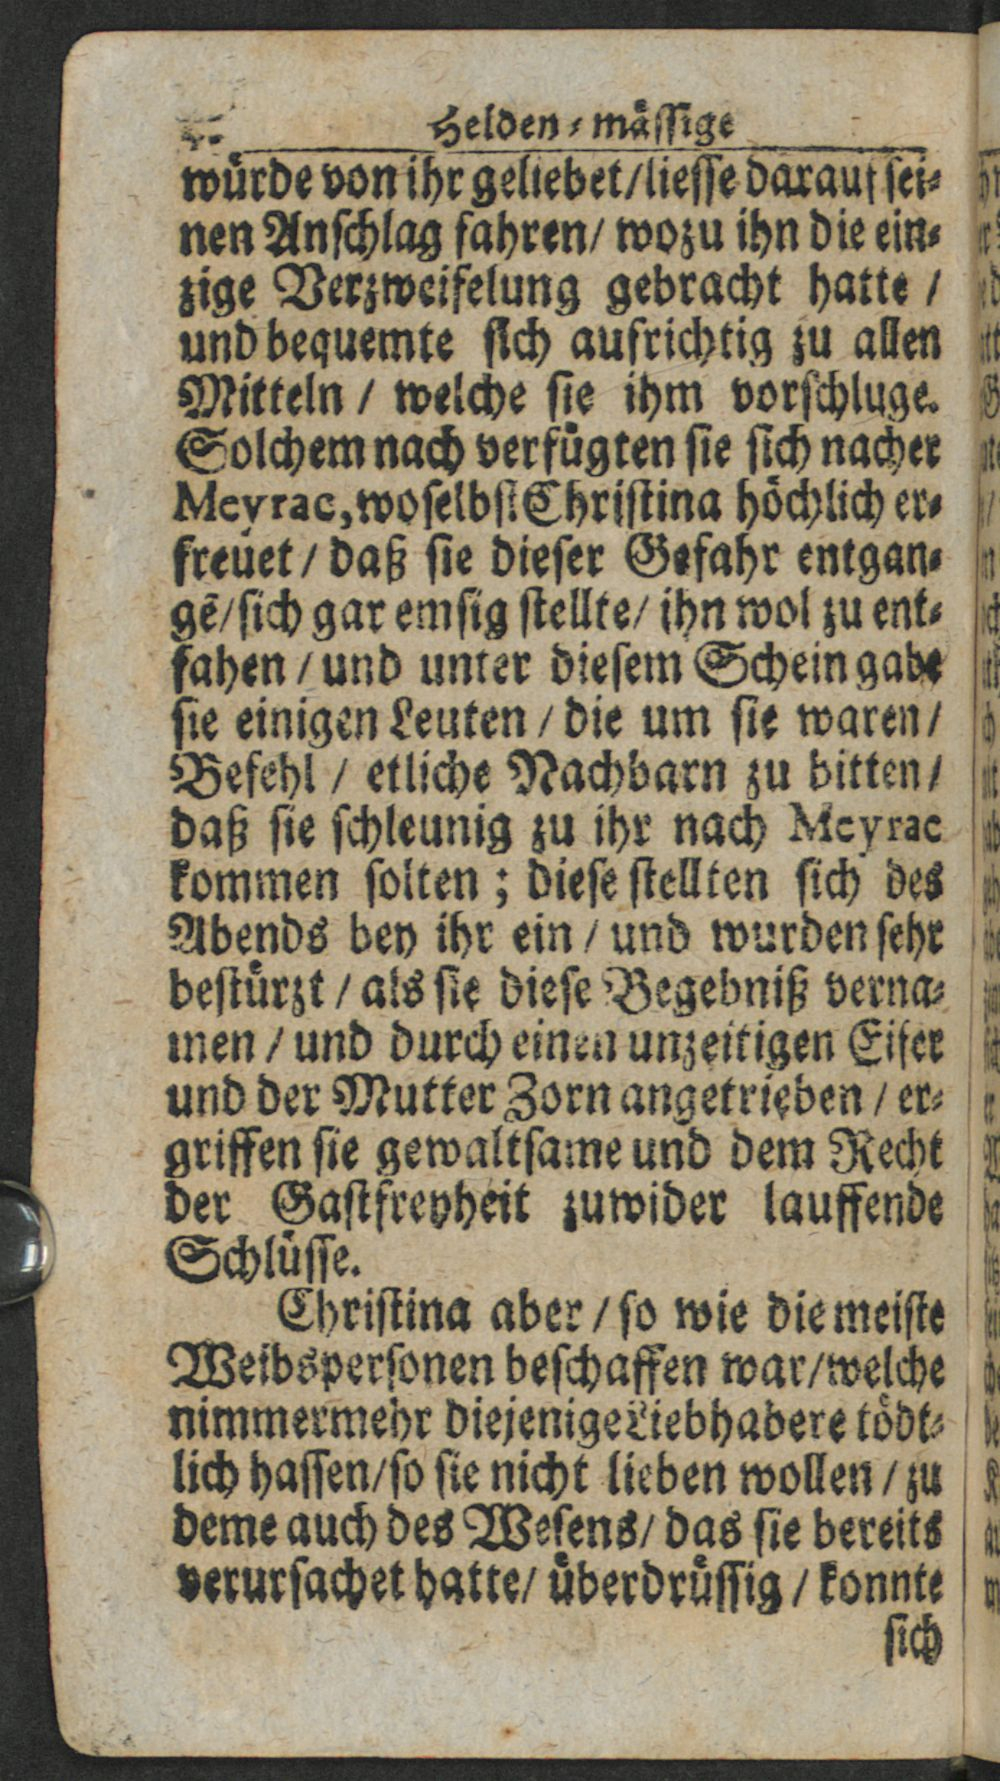 Helden-mässige
würde von ihr geliebet/liesse darauf sei-
nen Anschlag fahren/ wozu ihn die ein-
zige Verzweifelung gebracht hatte /
und bequemte sich aufrichtig zu allen
Mitteln / welche sie ihm vorschluge.
Solchem nach verfügten sie sich nacher
Meyrac, woselbst Christina höchlich er-
freuet / daß sie dieser Gefahr entgan-
gē/sich gar emsig stellte/ ihn wol zu ent-
fahen / und unter diesem Schein gabe
sie einigen Leuten / die um sie waren /
Befehl / etliche Nachbarn zu bitten /
daß sie schleunig zu ihr nach Meyrac
kommen solten ; diese stellten sich des
Abends bey ihr ein / und wurden sehr
bestürzt / als sie diese Begebniß verna-
men / und durch einen unzeitigen Eifer
und der Mutter Zorn angetrieben / er-
griffen sie gewaltsame und dem Recht
der Gastfreyheit zuwider lauffende
Schlüsse.
Christina aber / so wie die meiste
Weibspersonen beschaffen war/welche
nimmermehr diejenige Liebhabere tödt-
lich hassen/so sie nicht lieben wollen / zu
deme auch des Wesens/ das sie bereits
verursachet hatte/ überdrüssig / konnte
sich